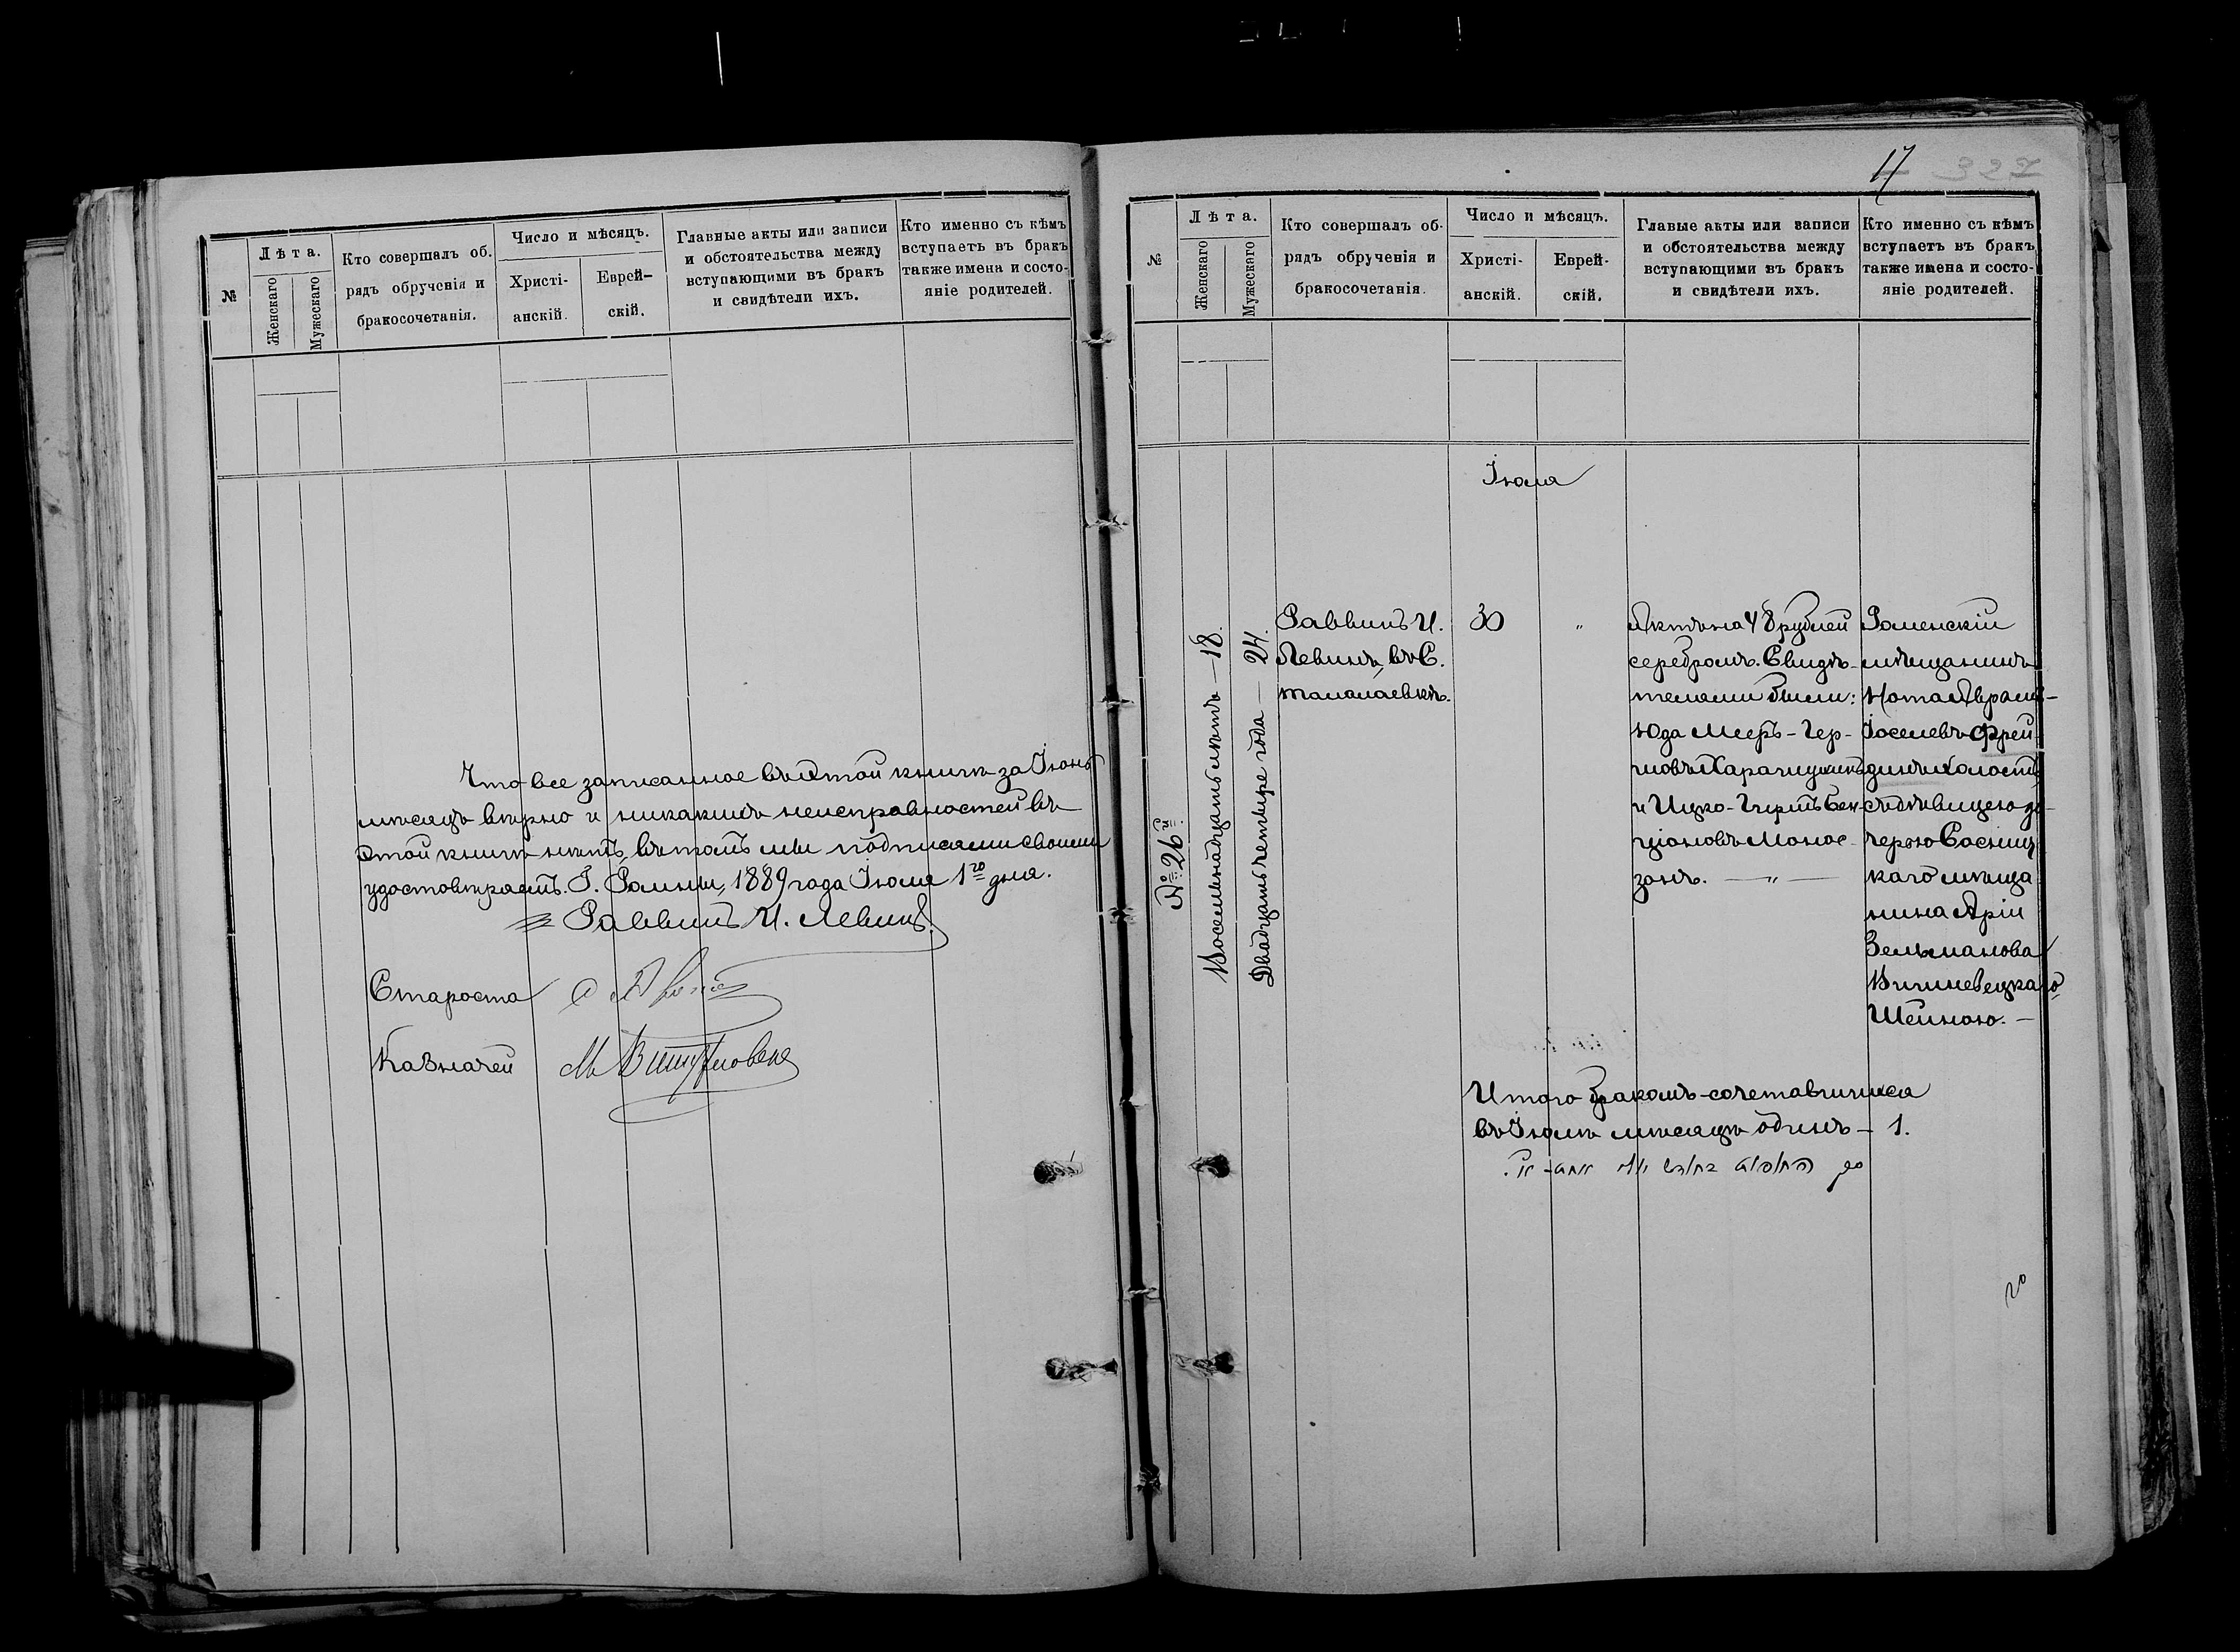 №
Лѣта.
Женскаго
Мужескаго
Кто совершалъ об.
рядъ обрученія и
бракосочетанія.
Число и мѣсяцъ.
Христі-
анскій.
Еврей-
скій.
Главные акты или записи
и обстоятельства между
вступающими въ бракъ
и свидѣтели ихъ.
Кто именно съ кѣмъ
вступаетъ въ бракъ
также имена и состо-
яніе родителей.
Что все записанное въ этой книгѣ за Іюнь
мѣсяцъ вѣрно и никакихъ неисправностей въ
этой книгѣ нѣтъ, въ томъ мы подписями своими
удостовѣряемъ. Г. Ромны, 1889 года Іюля 1го дня.
Раввинъ И. Левинъ.
Староста
Казначей
17 327
№
Лѣта.
Женскаго
Мужескаго
Кто совершалъ об-
рядъ обрученія и
бракосочетанія.
Число и мѣсяцъ.
Христі-
анскій.
Еврей-
скій.
Главые акты или записи
и обстоятельства между
вступающими въ бракъ
и свидѣтели ихъ.
Кто именно съ кѣмъ
вступаетъ въ бракъ
также имена и состо-
яніе родителей.
Іюля
№ 26й.
Восемьнадцать лѣтъ — 18.
Двадцать четыре года — 24.
Раввинъ И.
Левинъ, въ С.
Талалаевкѣ.
30
"
Актъ на 48 рублей
серебромъ. Свидѣ-
телями были:
Юда Мееръ-Гер-
и Ицко-Гиршъ Бен-
ціоновъ Монос-
зонъ. — " —
Роменскій
мѣщанинъ
Нота Аврамъ-
Іоселевъ Фрей-
динъ холостъ,
съ дѣвицею до-
черью Сосниц-
каго мѣща
нина Арія
Зельманова
Вишневецкаго
Шейною. —
Итого бракомъ-сочетавшихся
въ Іюлѣ мѣсяцѣ одинъ — 1.
20